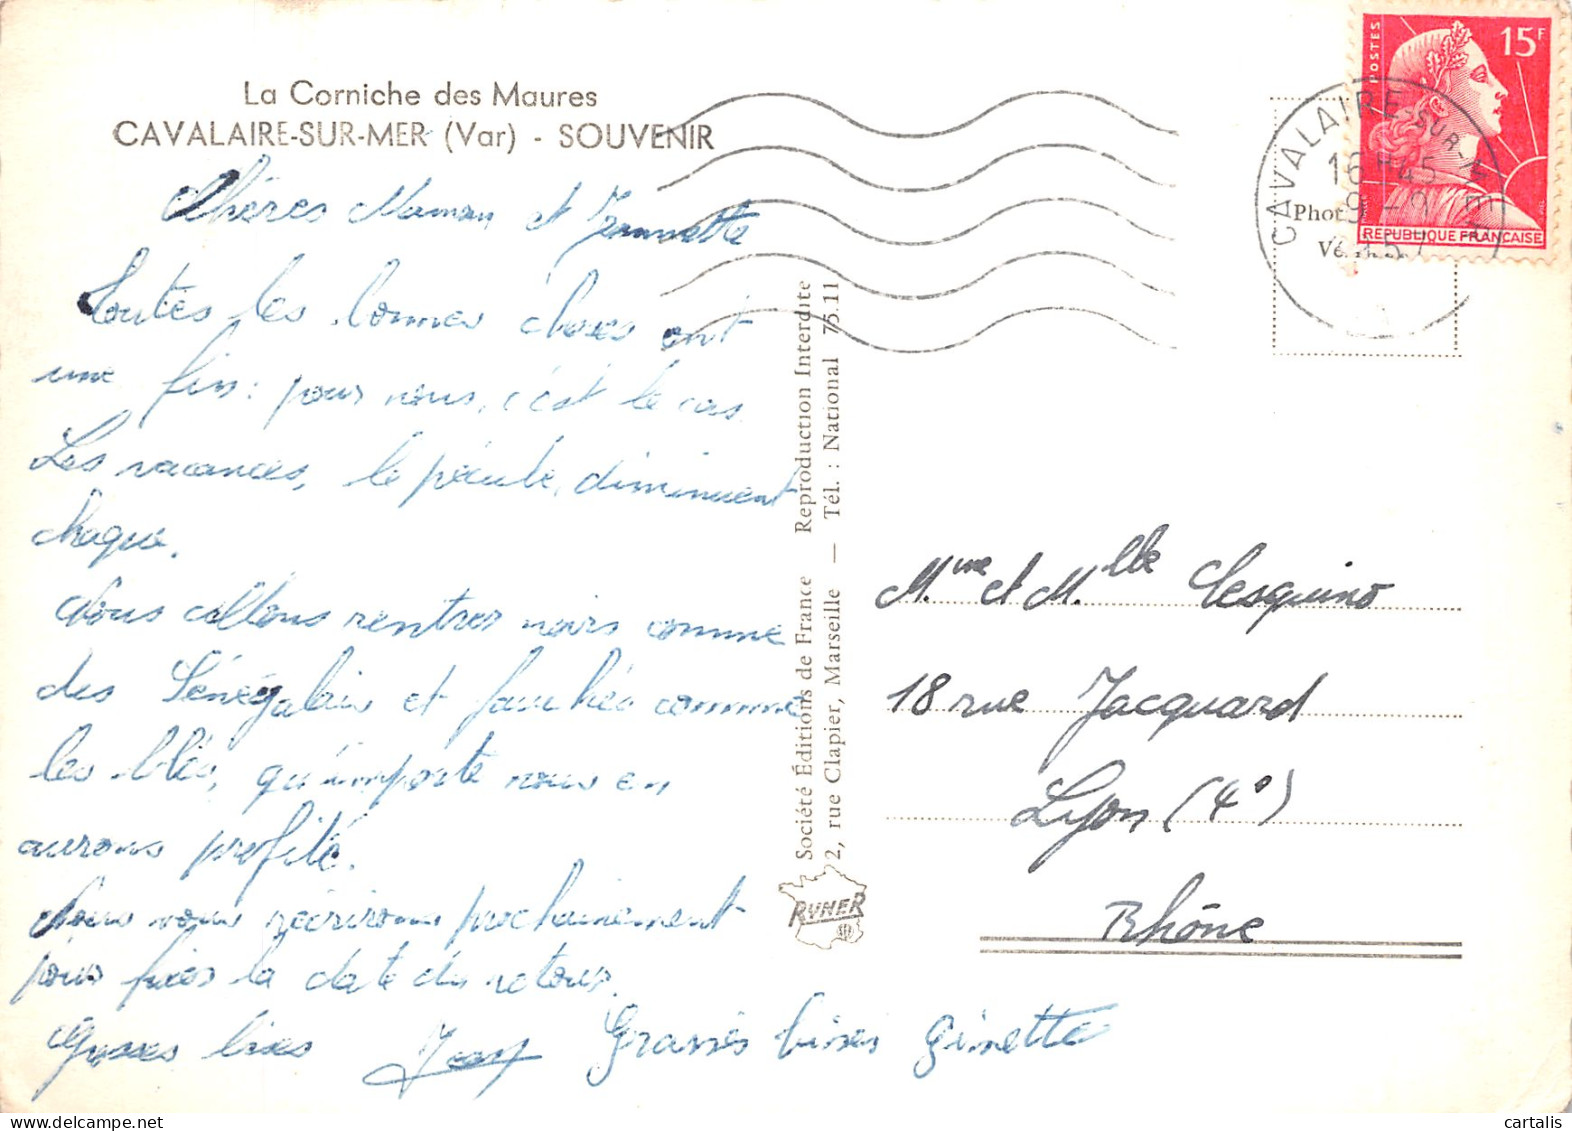 La Corniche des Maures
CAVALAIRE-SUR-MER (Var) - SOUVENIR
Chères Maman et Jeannette
Toutes les bonnes choses ont
une fin : pour nous, c'est le cas
Les vacances, le pécule, diminuent
chaque.
Nous allons rentrer noirs comme
des Sénégalais et fauchés comme
les blés, qu'importe nous en
aurons profité.
Nous vous récrirons prochainement
pour fixer la date du retour.
Grosses bises Jean Grosses bises Ginette
Société Editions de France Reproduction Interdite
2, rue Clapier, Marseille — Tél. : National 75.11
RUNER
POSTES
15F
REPUBLIQUE FRANÇAISE
CAVALAIRE-SUR-MER
16H45
9-9
Phot
Mme et Mlle Lesquino
18 rue Jacquard
Lyon (4°)
Rhône
cartalis